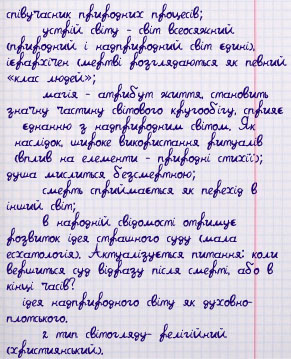 співучасник природних процесів;
устрій світу - світ всеосяжний
(природний і надприродний світ єдині),
ієрархічен (смертві розглядаються як певний
«клас людей»;
магія - атрибут життя, становить
значну частину світового кругообігу, сприяє
єднанню з надприродним світом. Як
наслідок, широке використання ритуалів
(вплив на елементи - природні стихії);
душа мислиться безсмертною;
смерть сприймається як перехід в
інший світ;
в народній свідомості отримує
розвиток ідея страшного суду (мала
есхатологія). Актуалізується питання: коли
вершиться суд відразу після смерті, або в
кінці часів?
ідея надприродного світу як духовно-
плотського.
2 тип світогляду- релігійний
(християнський).